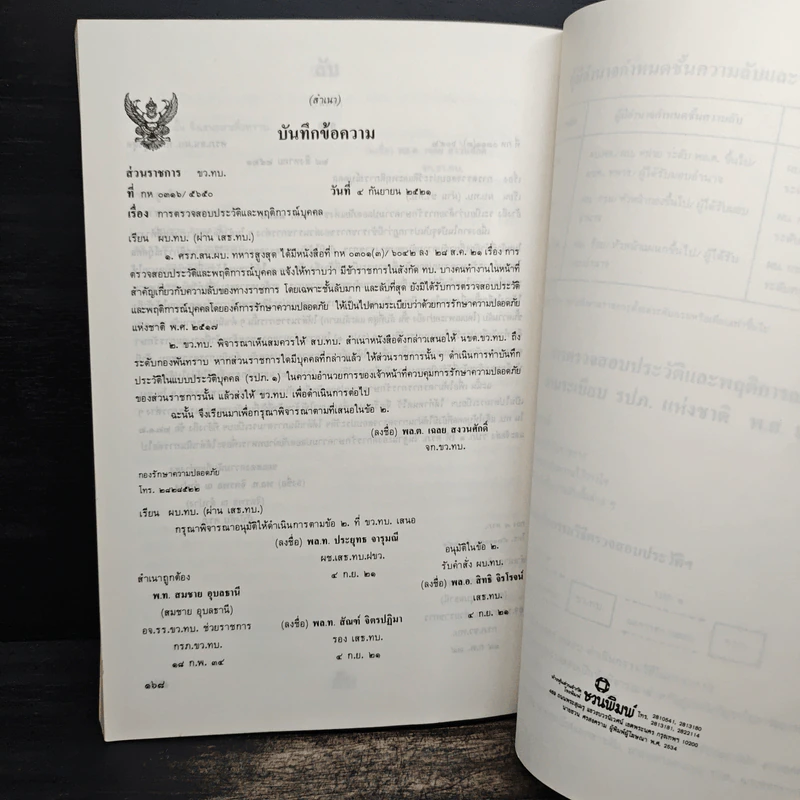 (สำเนา)
บันทึกข้อความ
ส่วนราชการ ขว.ทบ.
ที่ กห ๐๓๑๖/ ๕๖๕๐ วันที่ ๔ กันยายน ๒๕๒๑
เรื่อง การตรวจสอบประวัติและพฤติการณ์บุคคล
เรียน ผบ.ทบ. (ผ่าน เสธ.ทบ.)
๑. ศรภ.สน.ผบ. ทหารสูงสุด ได้มีหนังสือที่ กห ๐๓๐๑(๓)/ ๖๐๔๒ ลง ๒๘ ส.ค. ๒๑ เรื่อง การ
ตรวจสอบประวัติและพฤติการณ์บุคคล แจ้งให้ทราบว่า มีข้าราชการในสังกัด ทบ. บางคนทำงานในหน้าที่
สำคัญเกี่ยวกับความลับของทางราชการ โดยเฉพาะชั้นลับมาก และลับที่สุด ยังมิได้รับการตรวจสอบประวัติ
และพฤติการณ์บุคคลโดยองค์การรักษาความปลอดภัย ให้เป็นไปตามระเบียบว่าด้วยการรักษาความปลอดภัย
แห่งชาติ พ.ศ. ๒๕๑๗
๒. ขว.ทบ. พิจารณาเห็นสมควรให้ สบ.ทบ. สำเนาหนังสือดังกล่าวเสนอให้ นขต.ขว.ทบ. ถึง
ระดับกองพันทราบ หากส่วนราชการใดมีบุคคลที่กล่าวแล้ว ให้ส่วนราชการนั้น ๆ ดำเนินการทำบันทึก
ประวัติในแบบประวัติบุคคล (รปภ. ๑) ในความอำนวยการของเจ้าหน้าที่ควบคุมการรักษาความปลอดภัย
ของส่วนราชการนั้น แล้วส่งให้ ขว.ทบ. เพื่อดำเนินการต่อไป
ฉะนั้น จึงเรียนมาเพื่อกรุณาพิจารณาตามที่เสนอในข้อ ๒.
(ลงชื่อ) พล.ต. เฉลย สงวนศักดิ์
จก.ขว.ทบ.
กองรักษาความปลอดภัย
โทร. ๒๘๒๘๕๒๒
เรียน ผบ.ทบ. (ผ่าน เสธ.ทบ.)
กรุณาพิจารณาอนุมัติให้ดำเนินการตามข้อ ๒. ที่ ขว.ทบ. เสนอ
(ลงชื่อ) พล.ท. ประยุทธ จารุมณี
ผช.เสธ.ทบ.ฝขว.
๔ ก.ย. ๒๑
อนุมัติในข้อ ๒.
รับคำสั่ง ผบ.ทบ.
(ลงชื่อ) พล.อ. สิทธิ จิรโรจน์
เสธ.ทบ.
๔ ก.ย. ๒๑
สำเนาถูกต้อง
พ.ท. สมชาย อุบลธานี
(สมชาย อุบลธานี)
อจ.รร.ขว.ทบ. ช่วยราชการ
กรภ.ขว.ทบ.
๑๘ ก.พ. ๓๔
(ลงชื่อ) พล.ท. สัณฑ์ จิตรปฏิมา
รอง เสธ.ทบ.
๔ ก.ย. ๒๑
๑๖๘
ห้างหุ้นส่วนจำกัด
โรงพิมพ์ ชวนพิมพ์ โทร. 2810541, 2813180
2813181, 2822114
นายชวน ศรสงคราม ผู้พิมพ์ผู้โฆษณา พ.ศ. 2534